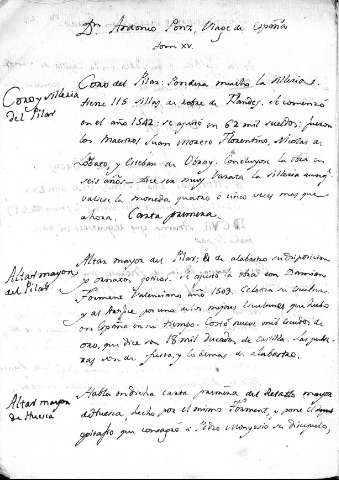 Dn. Antonio Ponz, Viage de España
tom XV.
Coro y silleria
del Pilar
Coro del Pilar: Pondera mucho la silleria.
tiene 115 sillas de roble de Flandes. Se comenzó
en el año 1542. se ajustó en 62 mil sueldos: fueron
los Maestros Juan Moreto Florentino, Nicolas de
Lobato, y Esteban de Obray. Concluyose la obra en
seis años. Dice ser muy barata la silleria aunq.
valiese la moneda quatro o cinco veces mas que
ahora. Carta primera
Altar mayor
del Pilar
Altar mayor del Pilar: Es de alabastro su disposicion
y ornatos goticos. Se ajustó la obra con Damian
Forment Valenciano año 1509. Celebra su escultura
y al Artifice por uno de los mejores escultores que hubo
en España en su tiempo. Costó nueve mil escudos de
oro, que dice son 18 mil ducados de Castilla. Las
son de y lo demas de alabastro.
Altar mayor
de Huesca
Habla en dicha carta primera del Retablo mayor
de Huesca, hecho por el mismo Forment, y pone el
epitafio que consagró a Pedro Monyosio su discipulo,